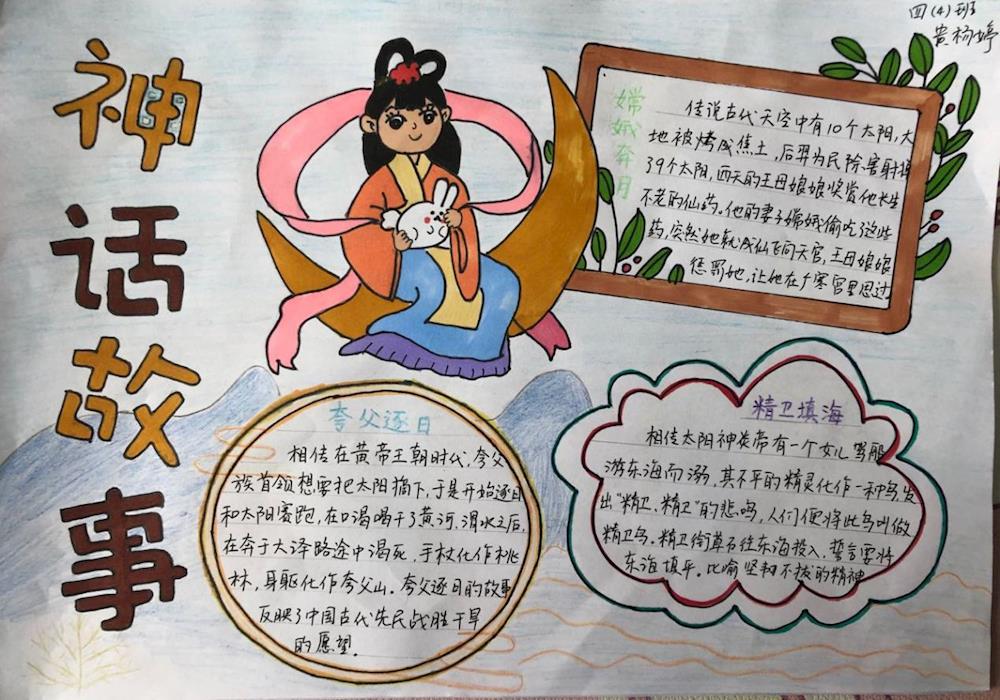 神话故事
四(4)班
贵杨婷
嫦娥奔月
传说古代天空中有10个太阳,大
地被烤成焦土,后羿为民除害射掉
了9个太阳,西天的王母娘娘奖赏他长生
不老的仙药。他的妻子嫦娥偷吃了这些
药,突然她就成仙飞向天宫,王母娘娘
惩罚她,让她在广寒宫里思过
夸父逐日
相传在黄帝王朝时代,夸父
族首领想要把太阳摘下,于是开始逐日
和太阳赛跑,在口渴喝干了黄河、渭水之后,
在奔于大泽路途中渴死,手杖化作桃
林,身躯化作夸父山。夸父逐日的故事
反映了中国古代先民战胜干旱
的愿望。
精卫填海
相传太阳神炎帝有一个女儿 驾船
游东海而溺,其不平的精灵化作一种鸟,发
出“精卫、精卫”的悲鸣,人们便将此鸟叫做
精卫鸟。精卫衔草石往东海投入,誓言要将
东海填平。比喻坚韧不拔的精神